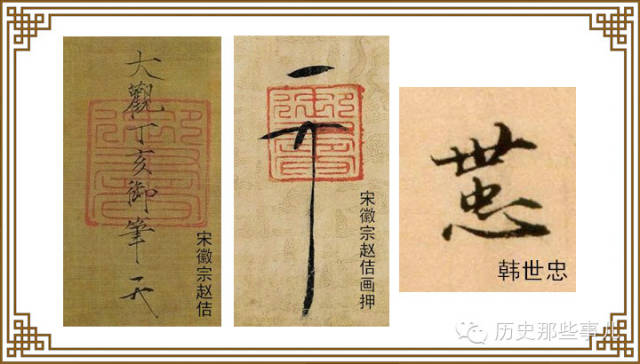 大觀丁亥御筆
宋徽宗赵佶
宋徽宗赵佶画押
世忠
韩世忠
历史那些事儿